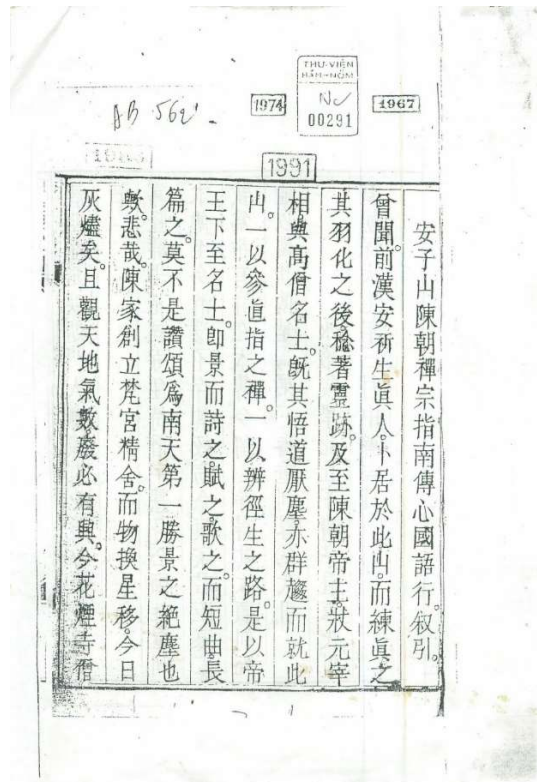 AB 562
THƯ-VIỆN
HÁN-NÔM
No
00291
1974
1967
1991
安子山陳朝禪宗指南傳心國語行。叙引。
曾聞。前漢安祈生眞人。卜居於此山。而練眞之
其羽化之後。稔著靈跡。及至陳朝帝主。狀元宰
相。與高僧名士。既其悟道厭塵。亦群趨而就此
山。一以參直指之禪。一以辨徑生之路。是以帝
王下至名士。卽景而詩之。賦之。歌之。而短曲。長
篇之。莫不是讚頌爲南天第一勝景之絶塵也
歟。悲哉。陳家創立梵宮精舍。而物換星移。今日
灰燼矣。且觀天地氣數。廢必有興。今花煙寺僧